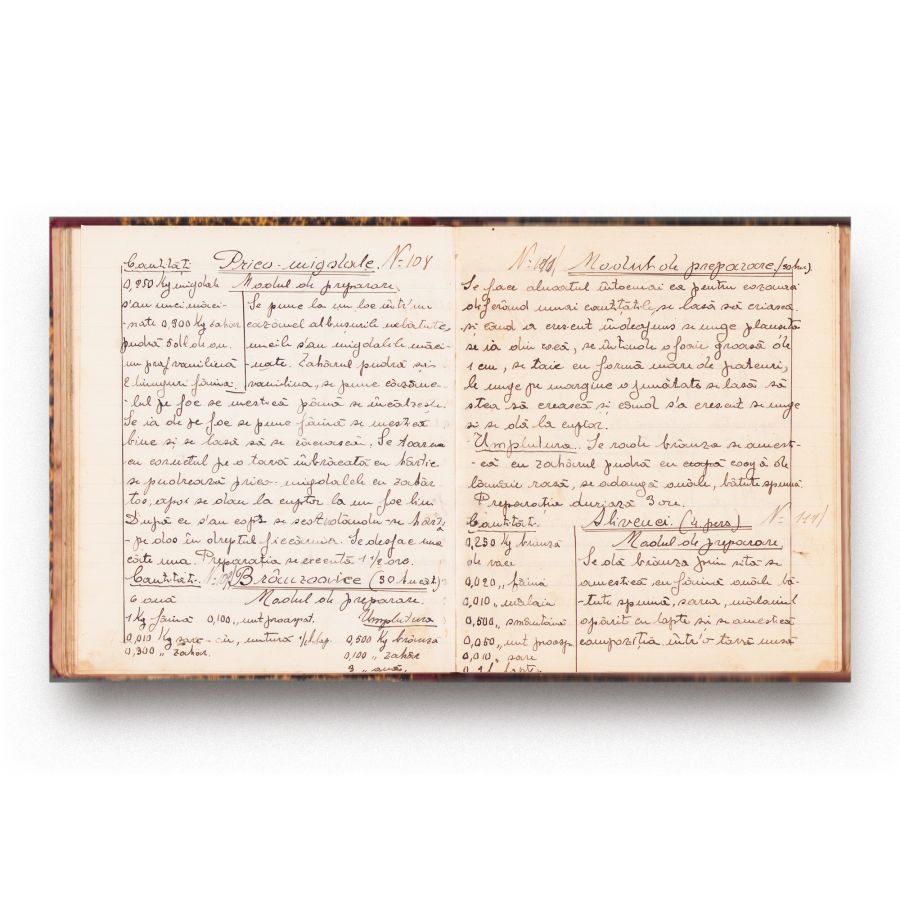 Cantităț: Prico-migdale. N-108
0,250 Kg migdale Modul de preparare
s'au nuci măci- Se pune la un foc într'un
-nate 0,300 Kg zahăr cazănel albușurile nebătute,
pudră 5 alb. de ou. nucile s'au migdalele măci-
un praf vanilină -nate. Zahărul pudră și
2 linguri făină. vanilina, se pune căzăne-
-lul pe foc se mestecă până se încălzește.
Se ia de pe foc se pune făină se mestecă
bine și se lasă să se răcească. Se toarnă
cu cornetul pe o tavă îmbrăcată cu hârtie
se pudrează prico-migdalele cu zahăr
tos, apoi se dau la cuptor la un foc
După ce s'au copt se scot
-pe dos în dreptul fiecăruia. Se desfac una
câte una. Preparația se execută 1 1/2 ore.
Cantităt. Brânzoaice (30 bucăț)
6 ouă Modul de preparare.
1 Kg făină 0,100 ,, unt proaspăt. Umplutura
0,010 Kg untură 0,500 Kg brânză
0,300 ,, zahăr. 0,100 ,, zahăr
3 ,, ouă.
N- Modul de preparare
Se face aluatul întocmai ca pentru cozonaci
diferând numai cantitățile, se lasă să crească
și când a crescut îndeajuns se unge planșeta
se ia din cocă, se întinde o foaie groasă de
1 cm, se taie cu formă mare de pateuri,
le unge pe margine o jumătate se lasă să
stea să crească și când s'a crescut se unge
și se dă la cuptor.
Umplutura. Se rade brânza se amest-
-că cu zahărul pudră cu coajă de
lămâie rasă, se adaugă ouăle, bătute spumă.
Preparația durează 3 ore.
Cantităt. Alivenci. (4 pers) N- 111
0,250 Kg brânză Modul de preparare
de vaci Se dă brânza prin sită se
0,020 ,, făină amestecă cu făină ouăle bă-
0,010 ,, mălai -tute spumă, sarea, mălaiul
0,500 ,, smântână opărit cu lapte și se amestecă
0,050 ,, unt proasp compoziția într'o tavă unsă
0,010 ,, sare